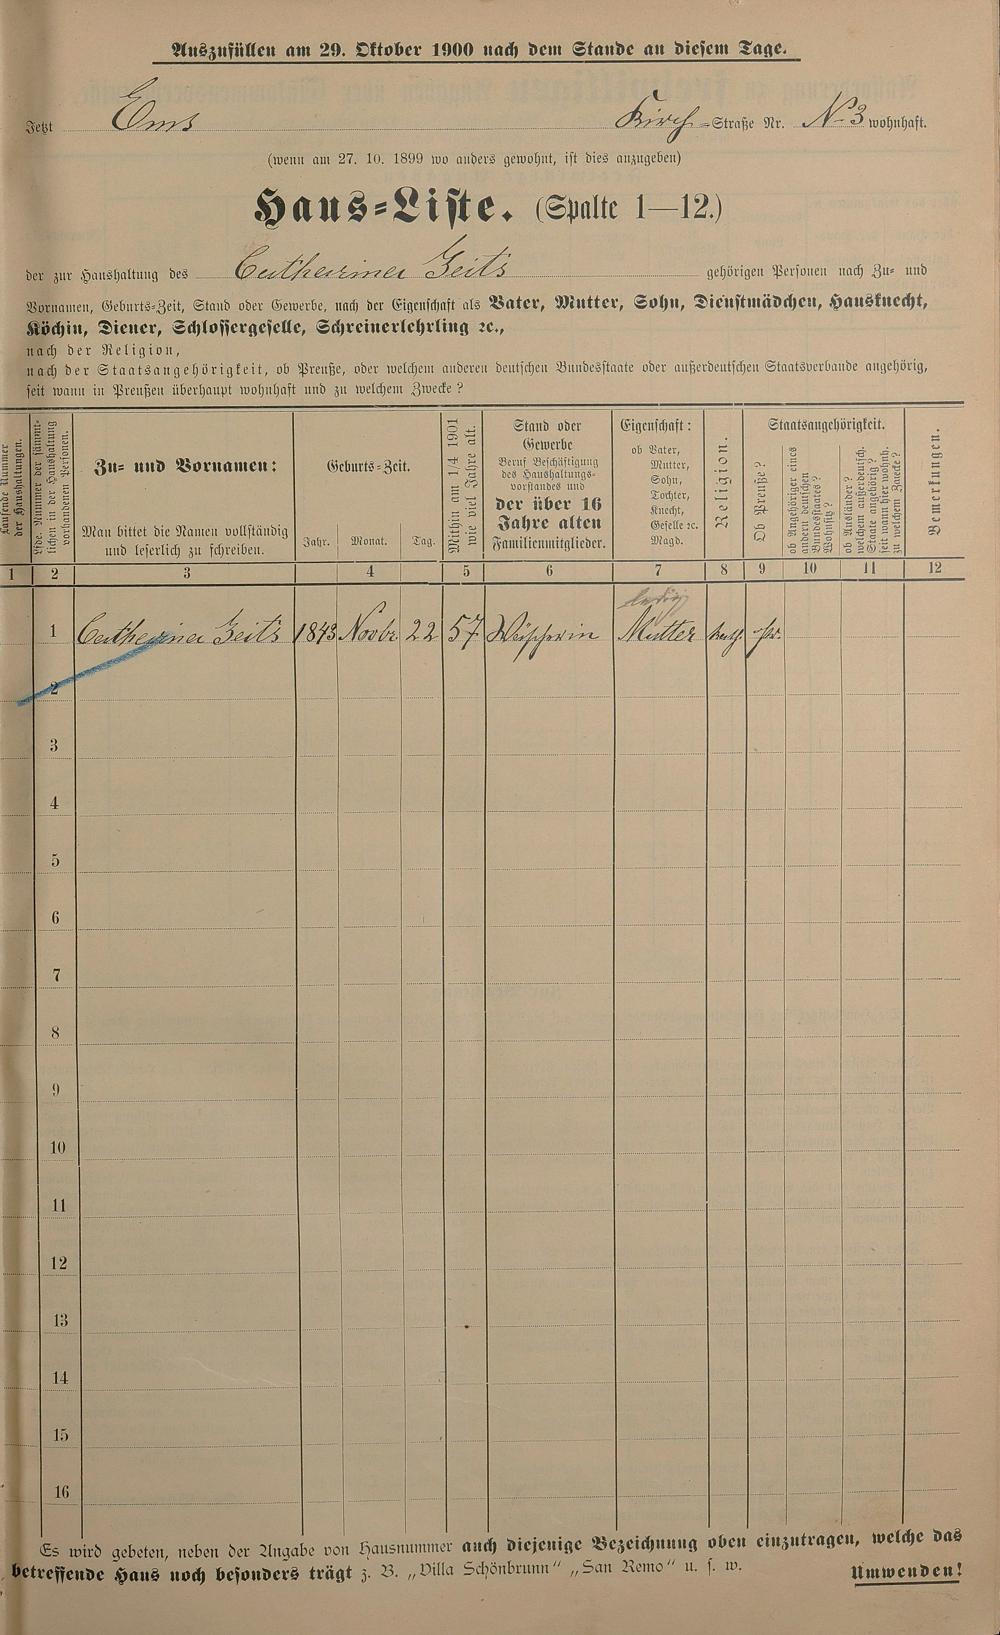 Auszufüllen am 29. Oktober 1900 nach dem Stande an diesem Tage.
Jetzt Ems Kirch-Straße Nr. No 3 wohnhaft.
(wenn am 27. 10. 1899 wo anders gewohnt, ist dies anzugeben)
Haus-Liste. (Spalte 1—12.)
der zur Haushaltung des Catharina Geits gehörigen Personen nach Zu- und
Vornamen, Geburts-Zeit, Stand oder Gewerbe, nach der Eigenschaft als Vater, Mutter, Sohn, Dienstmädchen, Hausknecht,
Köchin, Diener, Schlossergeselle, Schreinerlehrling ꝛc.,
nach der Religion,
nach der Staatsangehörigkeit, ob Preuße, oder welchem anderen deutschen Bundesstaate oder außerdeutschen Staatsverbande angehörig,
seit wann in Preußen überhaupt wohnhaft und zu welchem Zwecke?
Laufende Nummer
der Haushaltungen.
Lfde. Nummer der sämmt-
lichen in der Haushaltung
vorhandenen Personen.
Zu- und Vornamen:
Man bittet die Namen vollständig
und leserlich zu schreiben.
Geburts-Zeit.
Jahr. Monat. Tag.
Mithin am 1/4 1901
wie viel Jahre alt.
Stand oder
Gewerbe
Beruf Beschäftigung
des Haushaltungs-
vorstandes und
der über 16
Jahre alten
Familienmitglieder.
Eigenschaft:
ob Vater,
Mutter,
Sohn,
Tochter,
Knecht,
Geselle ꝛc.
Magd.
Religion.
Staatsangehörigkeit.
Ob Preuße?
ob Angehöriger eines
andern deutschen
Bundesstaates?
Wohnsitz?
ob Ausländer?
welchem außerdeutsch.
Staate angehörig?
seit wann hier wohnh.
zu welchem Zwecke?
Bemerkungen.
1 2 3 4 5 6 7 8 9 10 11 12
ledig
1 Catharina Geits 1843 Novbr 22 57 Wäscherin Mutter kath. Pr.
2
3
4
5
6
7
8
9
10
11
12
13
14
15
16
Es wird gebeten, neben der Angabe von Hausnummer auch diejenige Bezeichnung oben einzutragen, welche das
betreffende Haus noch besonders trägt z. B. „Villa Schönbrunn“ „San Remo“ u. s. w. Umwenden!